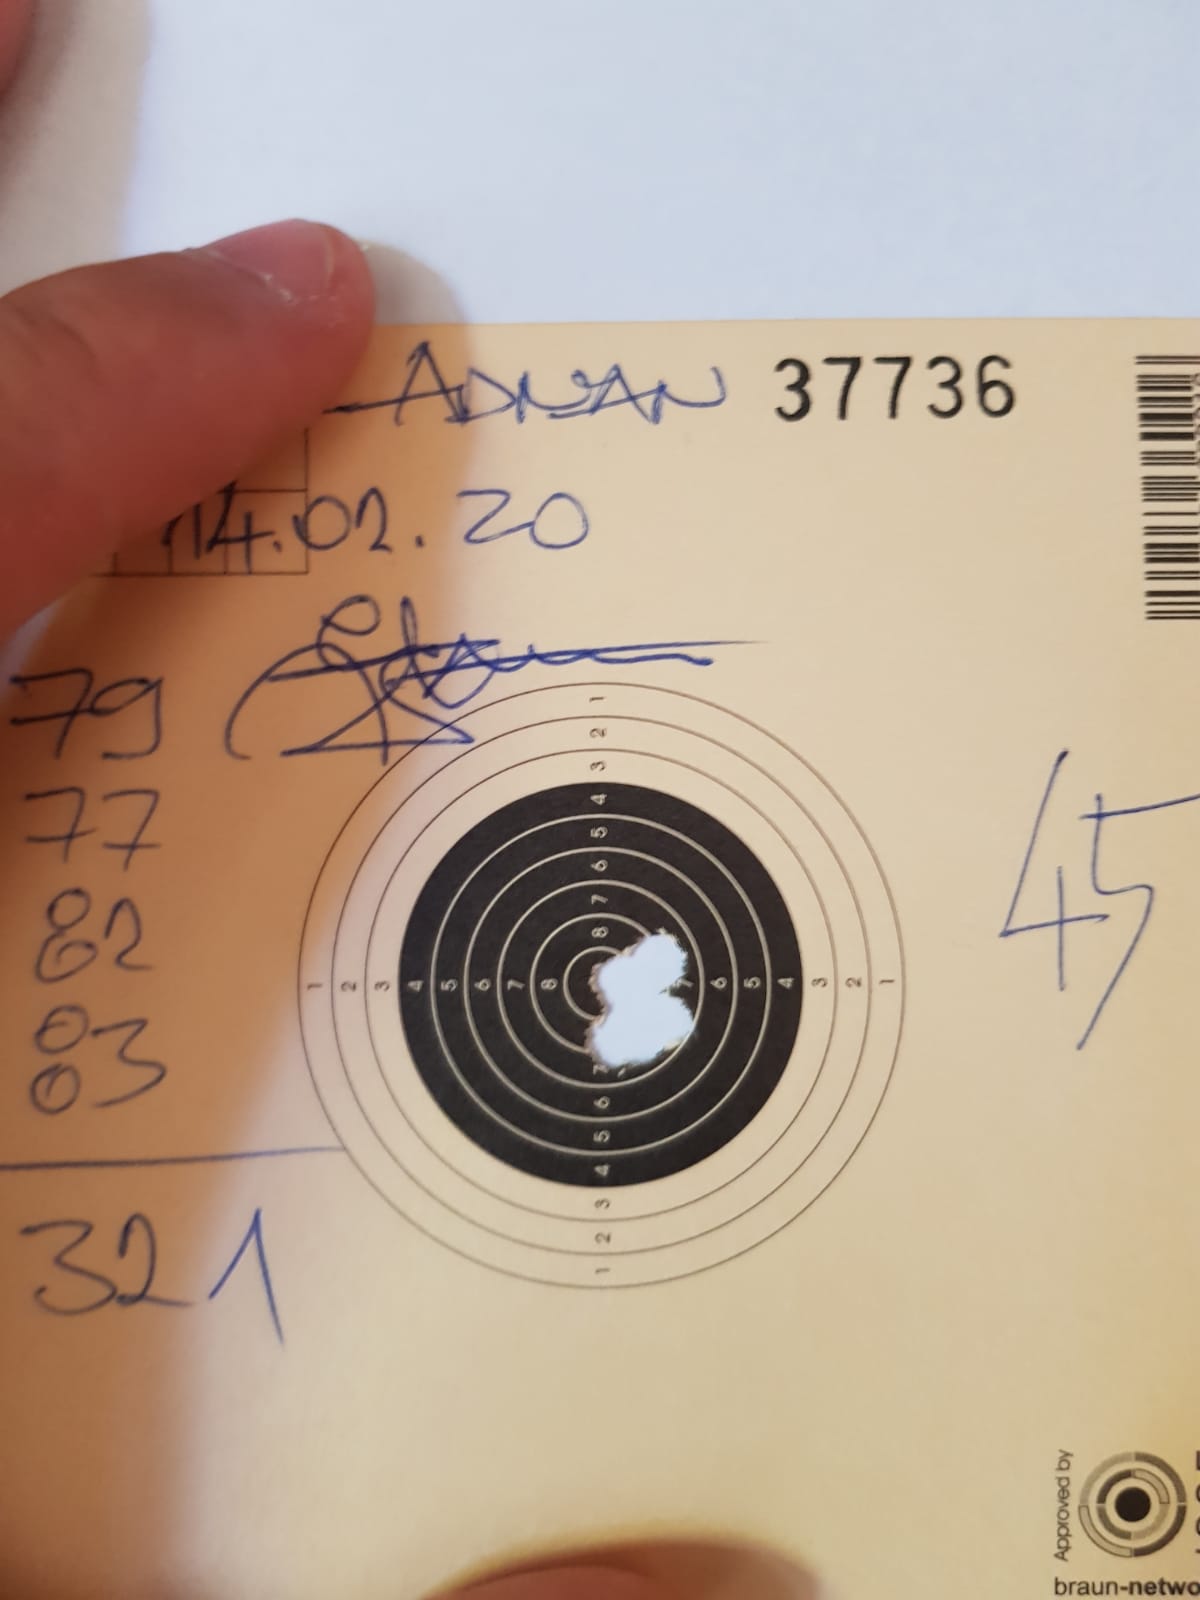 ADNAN 37736
14.02.20
79
77
82
83
321
45
1
2
3
4
5
6
7
8
1 2 3 4 5 6 7 8 7 6 5 4 3 2 1
7
6
5
4
3
2
1
Approved by
braun-netwo